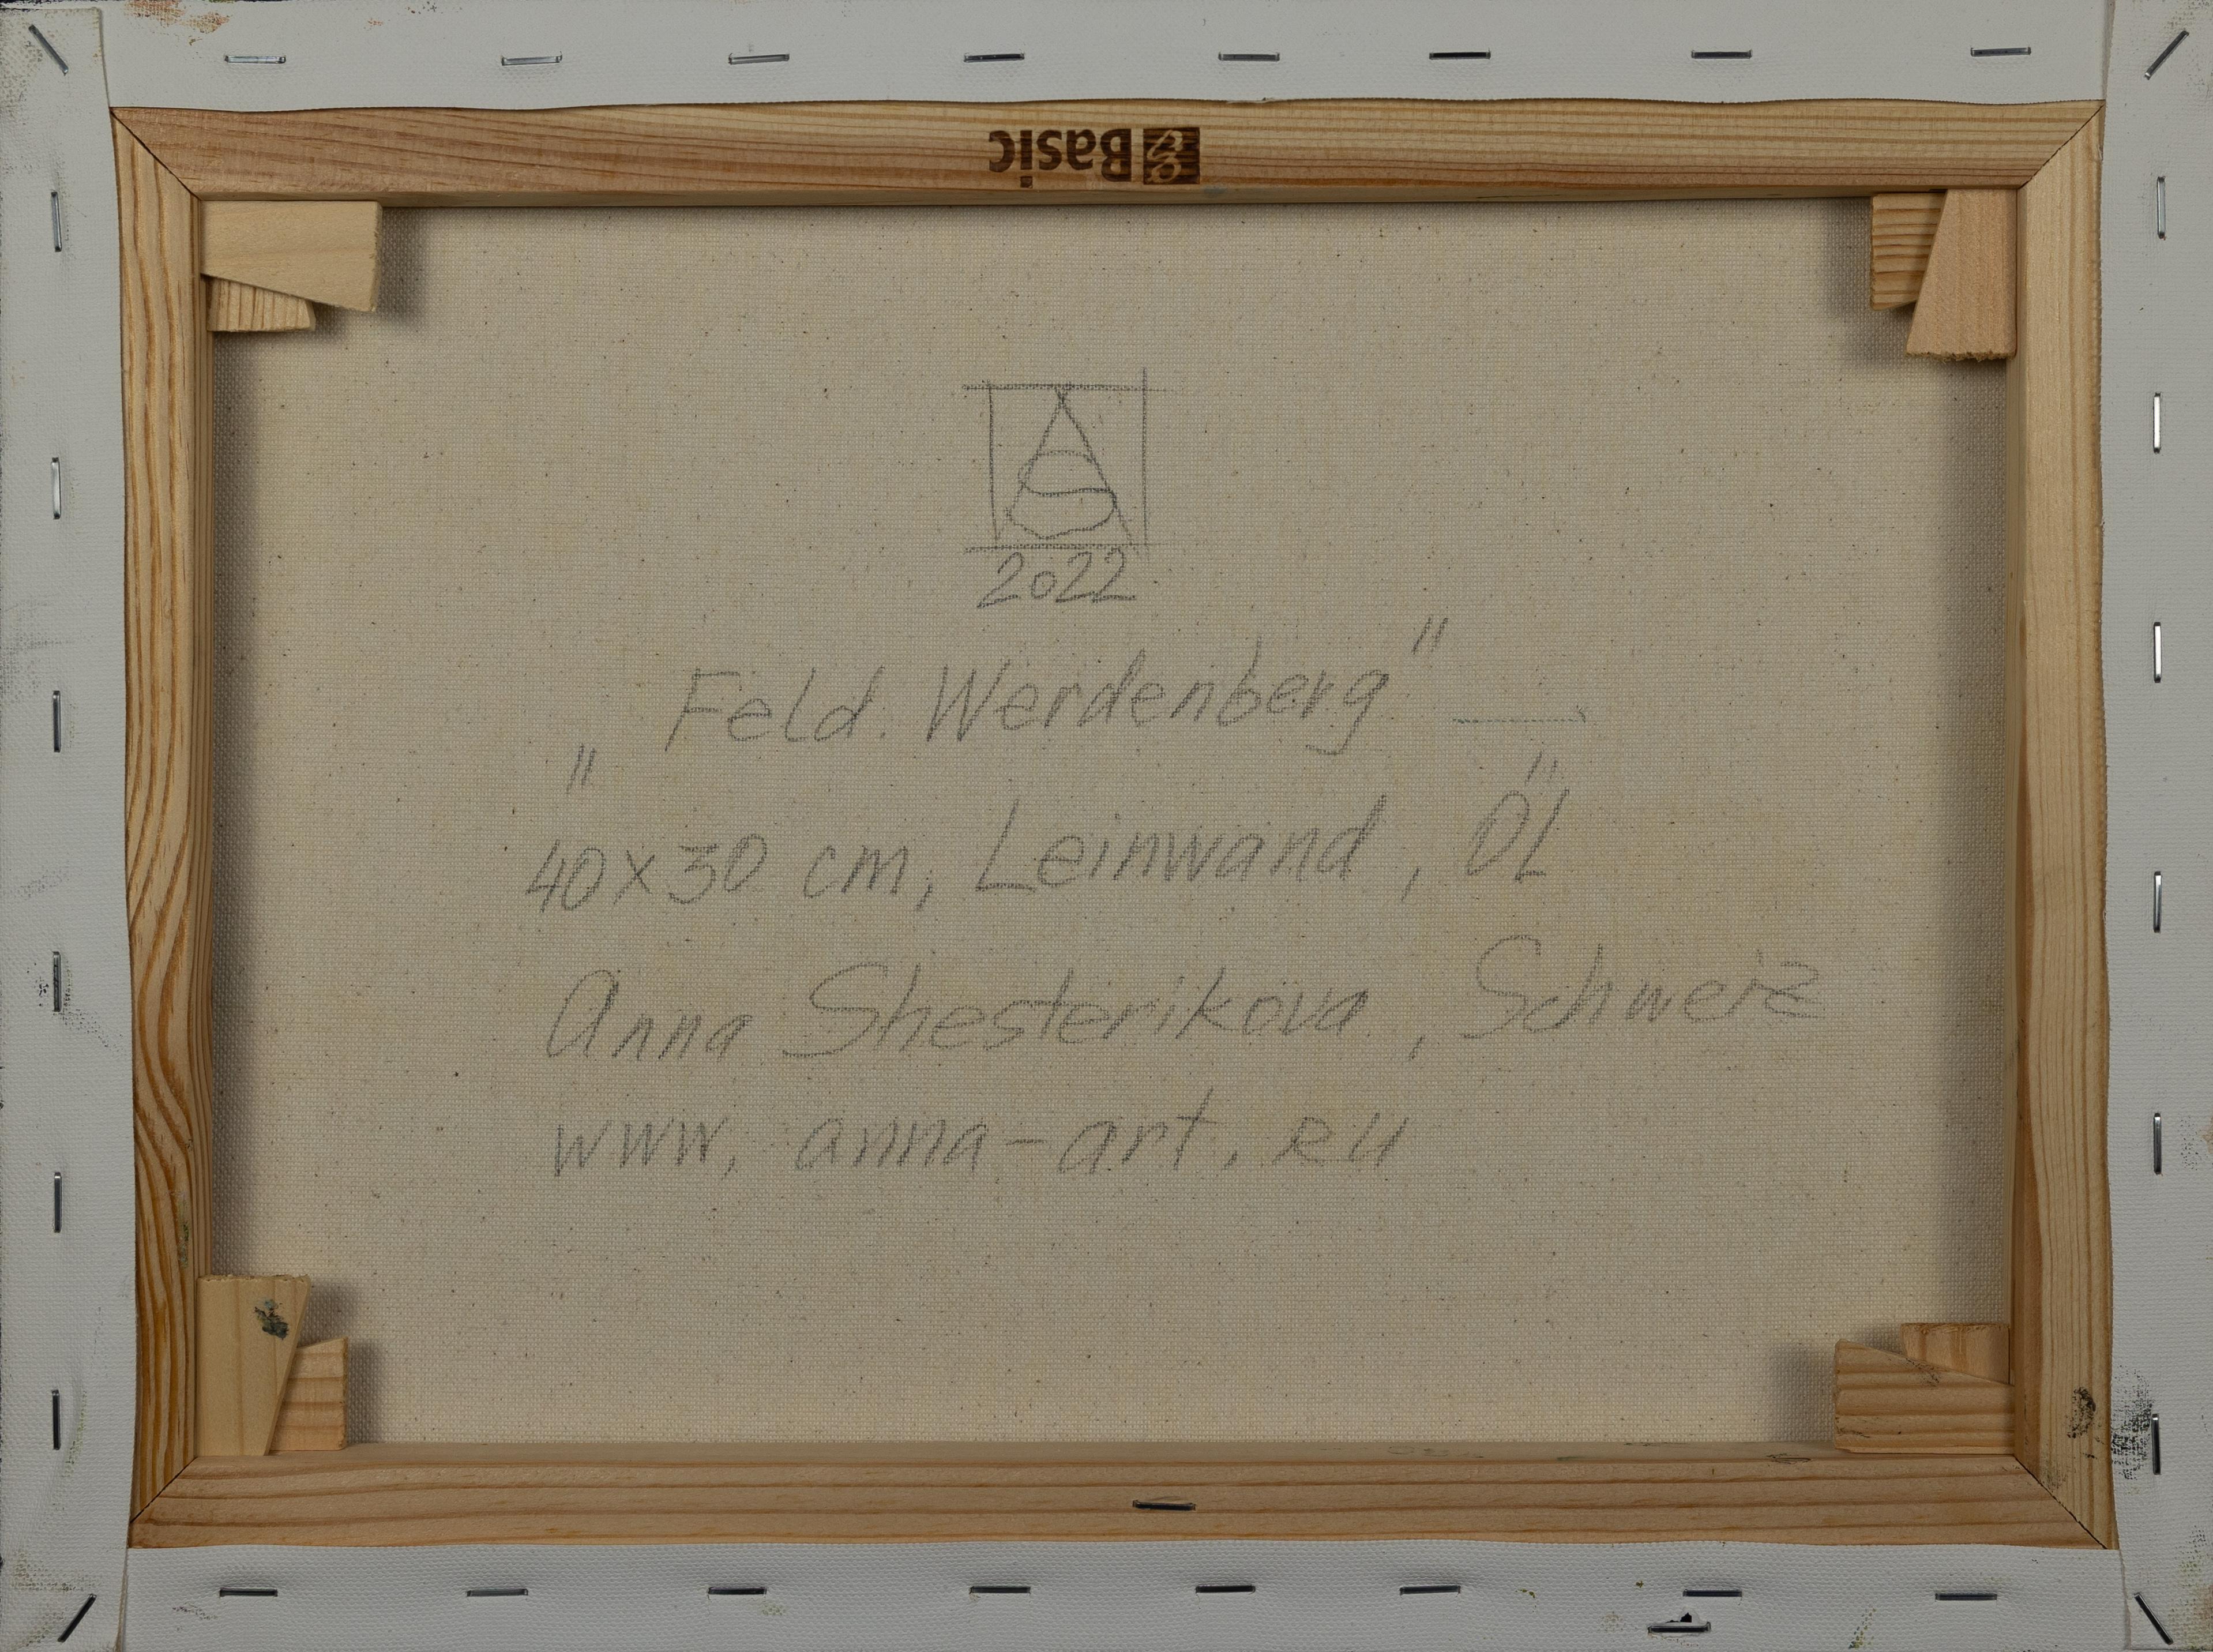 Basic
AS
2022
„Feld. Werdenberg"
40x30 cm, Leinwand, ÖL
Anna Shesterikova, Schweiz
www. anna-art.RU